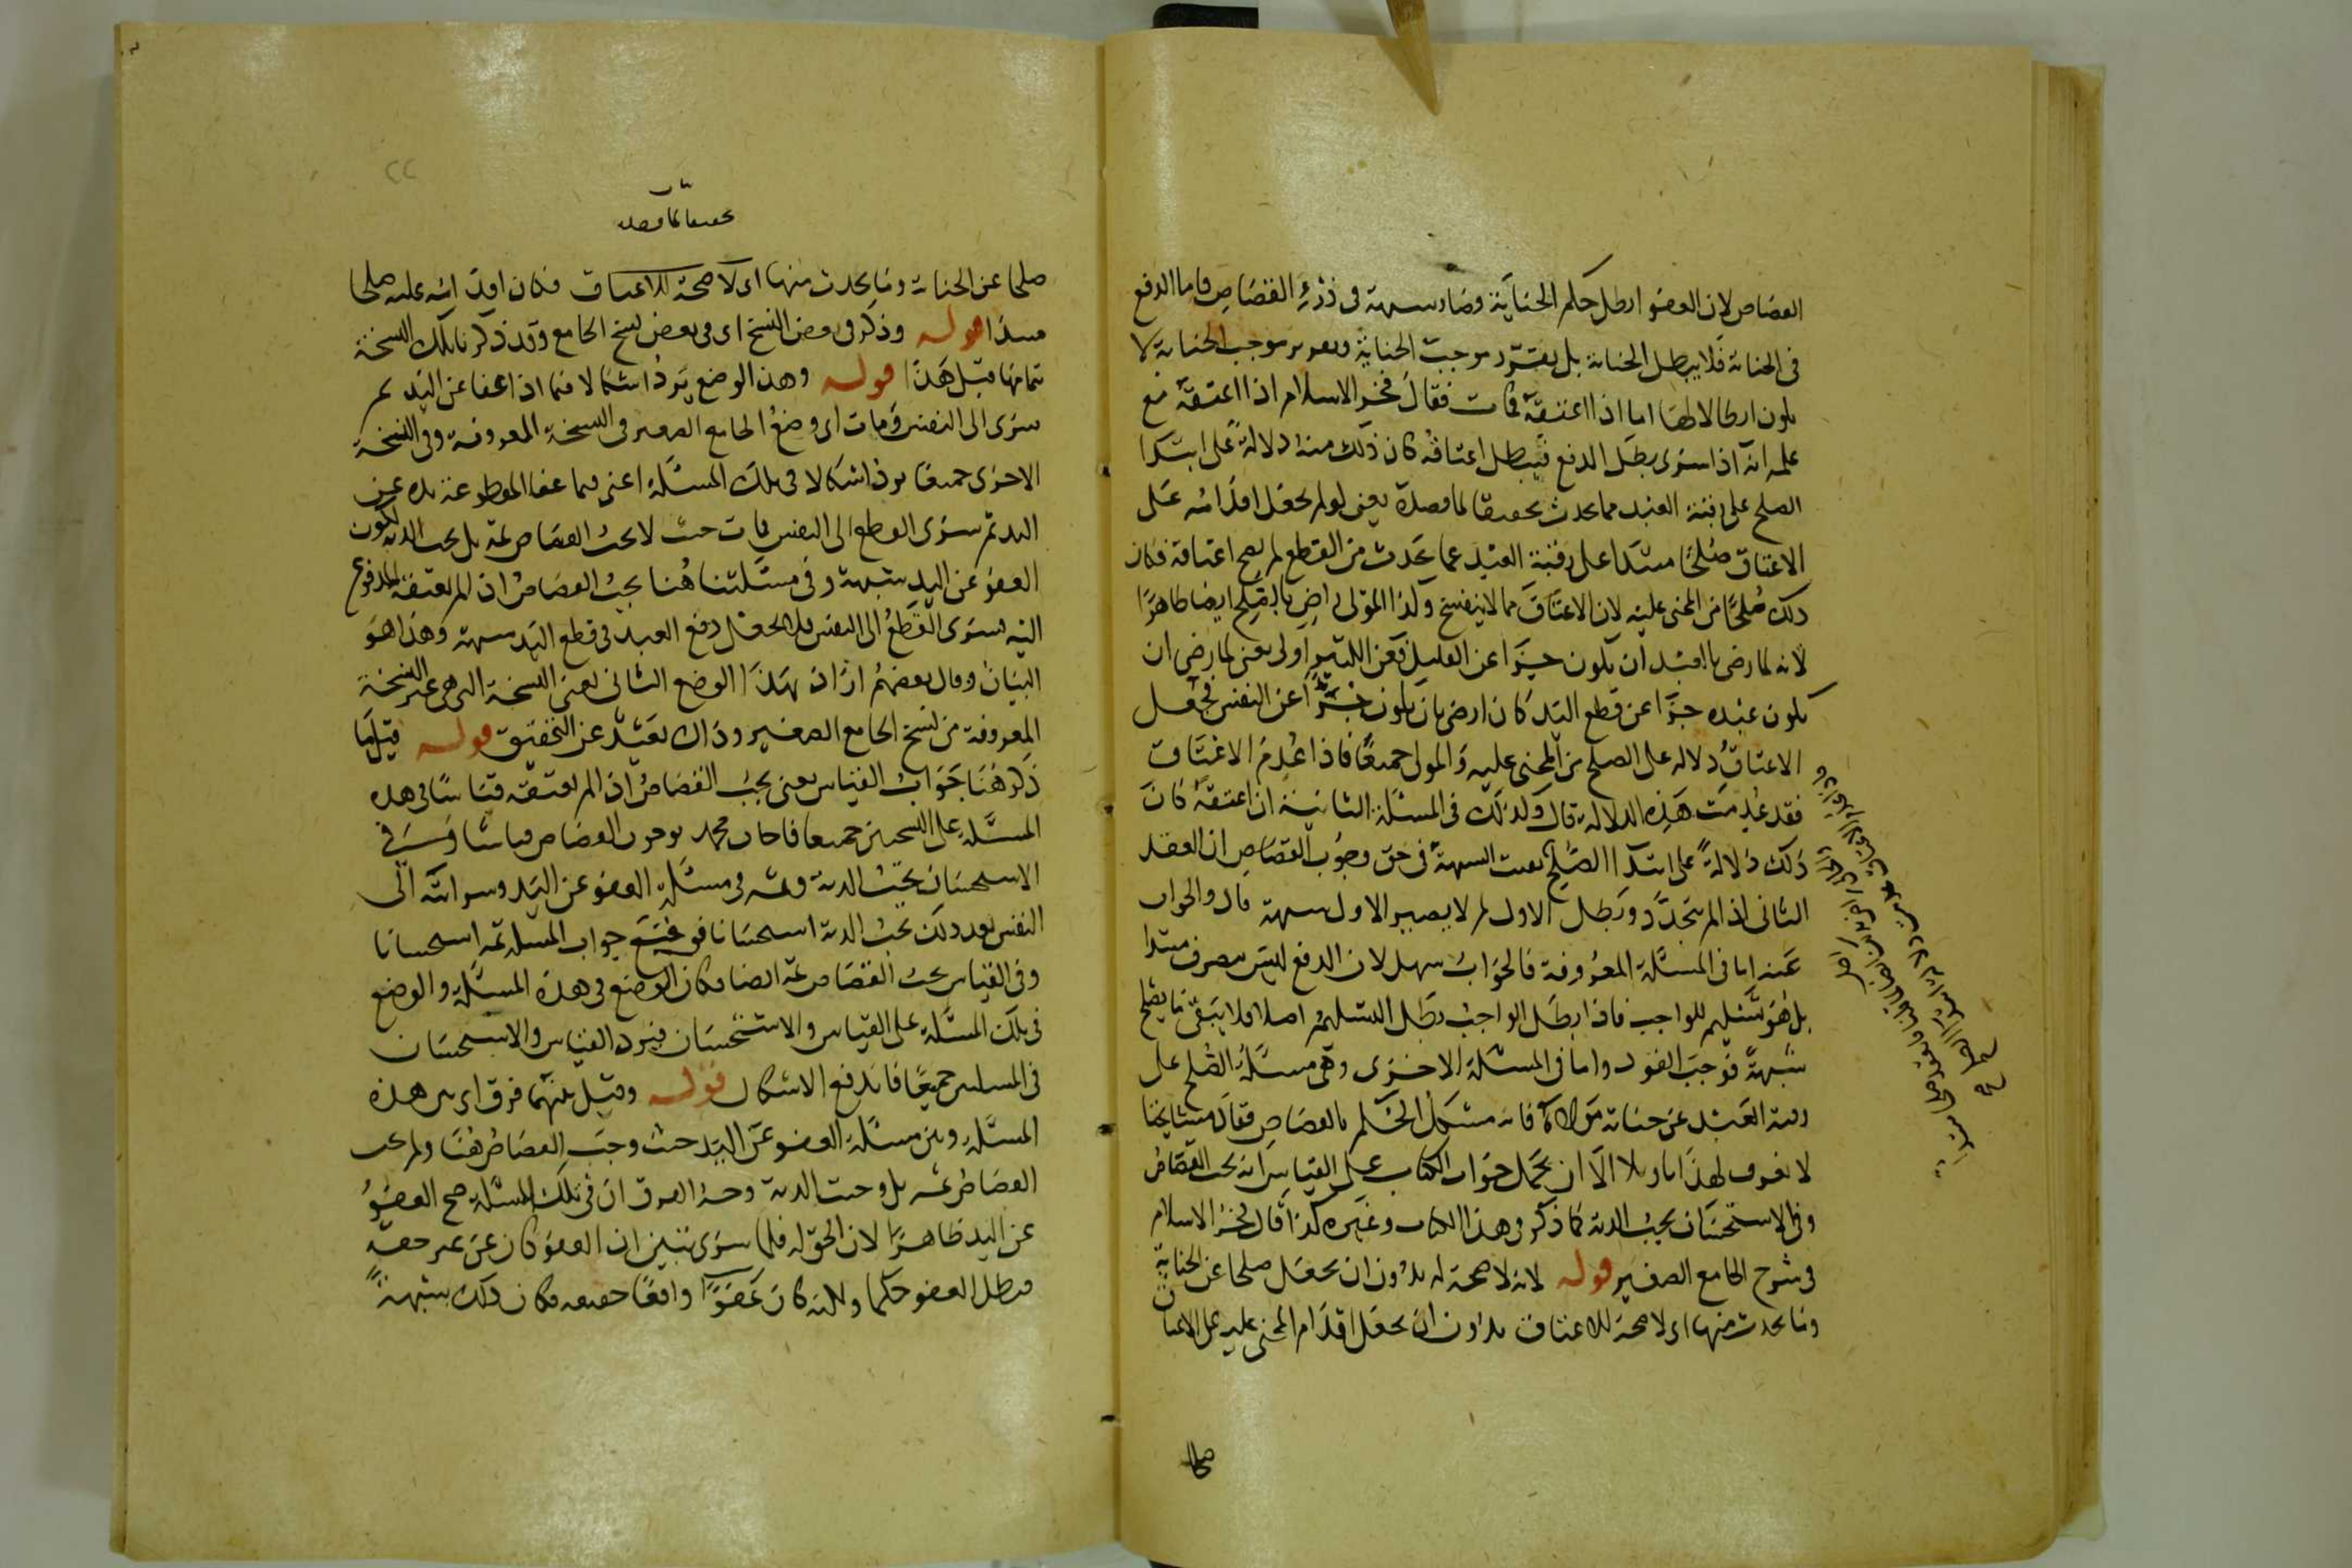 القصاص لان العفو ابطل حكم الجناية وصار شبهة فى درء القصاص فاما الدفع
فى الجناية فلا يبطل الجناية بل يقرر موجب الجناية وتقرير موجب الجناية لا
يكون ابطالا لها اما اذا اعتقه فمات فقال فخر الاسلام اذا اعتقه مع
علمه انه اذا سرى بطل الدفع فيبطل اعتاقه كان ذلك منه دلالة على ابتداء
الصلح على رقبة العبد مما يحدث تحقيقا لما قصده يعنى لو لم يجعل اقدامه على
الاعتاق صلحا مبتدا على رقبة العبد عما يحدث من القطع لم يصح اعتاقه فكان
ذلك صلحا من المجنى عليه لان الاعتاق مما لا ينفسخ وكذا المولى راض بالصلح ايضا ظاهرا
لانه لما رضى بالعبد ان يكون جبرا عن القليل فعن الكثير اولى يعنى لما رضى ان
يكون عبده جبرا عن قطع اليد كان ارضى بان يكون جبرا عن النفس فجعل
الاعتاق دلالة على الصلح من المجنى عليه والمولى جميعا فاذا عدم الاعتاق
فقد عدمت هذه الدلالة قال ولذلك فى المسئلة الثانية ان اعتقه كان
ذلك دلالة على ابتداء الصلح بقيت الشبهة فى حق وجوب القصاص ان العقد
الثانى اذا لم يتجدد وبطل الاول لم لا يصير الاول شبهة قال والجواب
عنه اما فى المسئلة المعروفة فالجواب سهل لان الدفع ليس بصرف مبتدا
بل هو تسليم للواجب فاذا بطل الواجب بطل التسليم اصلا فلا يبقى ما يصلح
شبهة فوجب القود واما فى المسئلة الاخرى وهى مسئلة الصلح على
رقبة العبد عن جناية مولاه فانه مشكل الحكم بالقصاص فقال مشايخنا
لا نعرف لهذا تاويلا الا ان يحمل جواب الكتاب على القياس انه يجب القصاص
وفى الاستحسان يجب الدية كما ذكر فى هذا الكتاب وغيره كذا قال فخر الاسلام
فى شرح الجامع الصغير قوله لانه لا صحة له بدون ان يجعل صلحا عن الجناية
وما يحدث منها اى لا صحة للاعتاق بدون ان يجعل اقدام المجنى عليه على الاعتاق
صلحا
تحقيقا لما قصده
صلحا عن الجناية وما يحدث منها اى لا صحة للاعتاق فكان اقدامه عليه صلحا
مبتدا قوله وذكر فى بعض النسخ اى فى بعض نسخ الجامع وقد ذكرنا تلك النسخة
بتمامها قبل هذا قوله وهذا الوضع يرد اشكالا فيما اذا عفا عن اليد ثم
سرى الى النفس ومات اى وضع الجامع الصغير فى النسخة المعروفة وفى النسخة
الاخرى جميعا يرد اشكالا فى تلك المسئلة اعنى فيما عفا المقطوعة يده عن
اليد ثم سرى القطع الى النفس فمات حيث لا يجب القصاص ثمة بل يجب الدية لكون
العفو عن اليد شبهة وفى مسئلتنا هنا يجب القصاص اذا لم يعتقه المدفوع
اليه لسرى القطع الى النفس فلم يجعل دفع العبد فى قطع اليد شبهة وهذا هو
البيان وقال بعضهم اراد بهذا الوضع الثانى يعنى النسخة التى هى غير النسخة
المعروفة من نسخ الجامع الصغير وذاك بعيد عن التحقيق قوله قيل ما
ذكر هنا جواب القياس يعنى يجب القصاص اذا لم يعتقه قياسا فى هذه
المسئلة على النسختين جميعا فاجاب محمد بوجوب القصاص قياسا وفى
الاستحسان يجب الدية وثمة فى مسئلة العفو عن اليد وسرايته الى
النفس بعد ذلك يجب الدية استحسانا فوقع جواب المسئلة ثمة استحسانا
وفى القياس يجب القصاص ثمة ايضا فكان الوضع فى هذه المسئلة والوضع
فى تلك المسئلة على القياس والاستحسان فيرد القياس والاستحسان
فى المسئلتين جميعا فاندفع الاشكال قوله وقيل بينهما فرق اى بين هذه
المسئلة وبين مسئلة العفو عن اليد حيث وجب القصاص هنا ولم يجب
القصاص ثمه بل وجبت الدية وجه الفرق ان فى تلك المسئلة صح العفو
عن اليد ظاهرا لان الحق له فلما سرى تبين ان العفو كان عن غير حقه
فبطل العفو حكما ولكنه كان عفوا واقعا حقيقة فكان ذلك شبهة